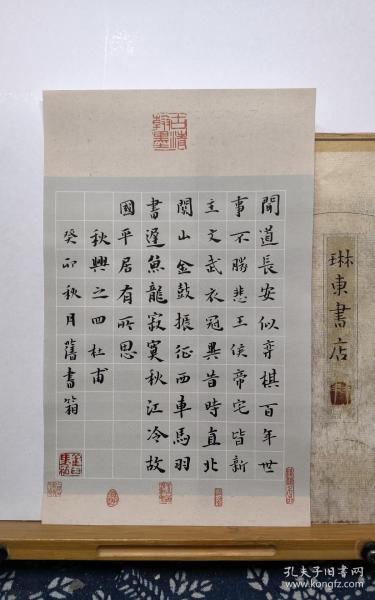 聞道長安似弈棋百年世
事不勝悲王侯帝宅皆新
主文武衣冠異昔時直北
關山金鼓振征西車馬羽
書遲魚龍寂寞秋江冷故
國平居有所思
秋興之四杜甫
癸卯秋月舊書箱
琳東書店
孔夫子旧书网
www.kongfz.com